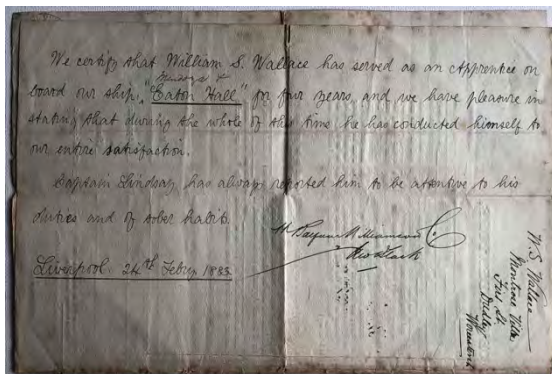 We certify that William S. Wallace has served as an apprentice on
board our ship, "Eaton Hall" for four years, and we have pleasure in
stating that during the whole of this time he has conducted himself to
our entire satisfaction.
Captain Lindsay has always reported him to be attentive to his
duties and of sober habit.
Liverpool. 24th Febry 1885
W. S. Wallace
Montrose Villa
Dudley